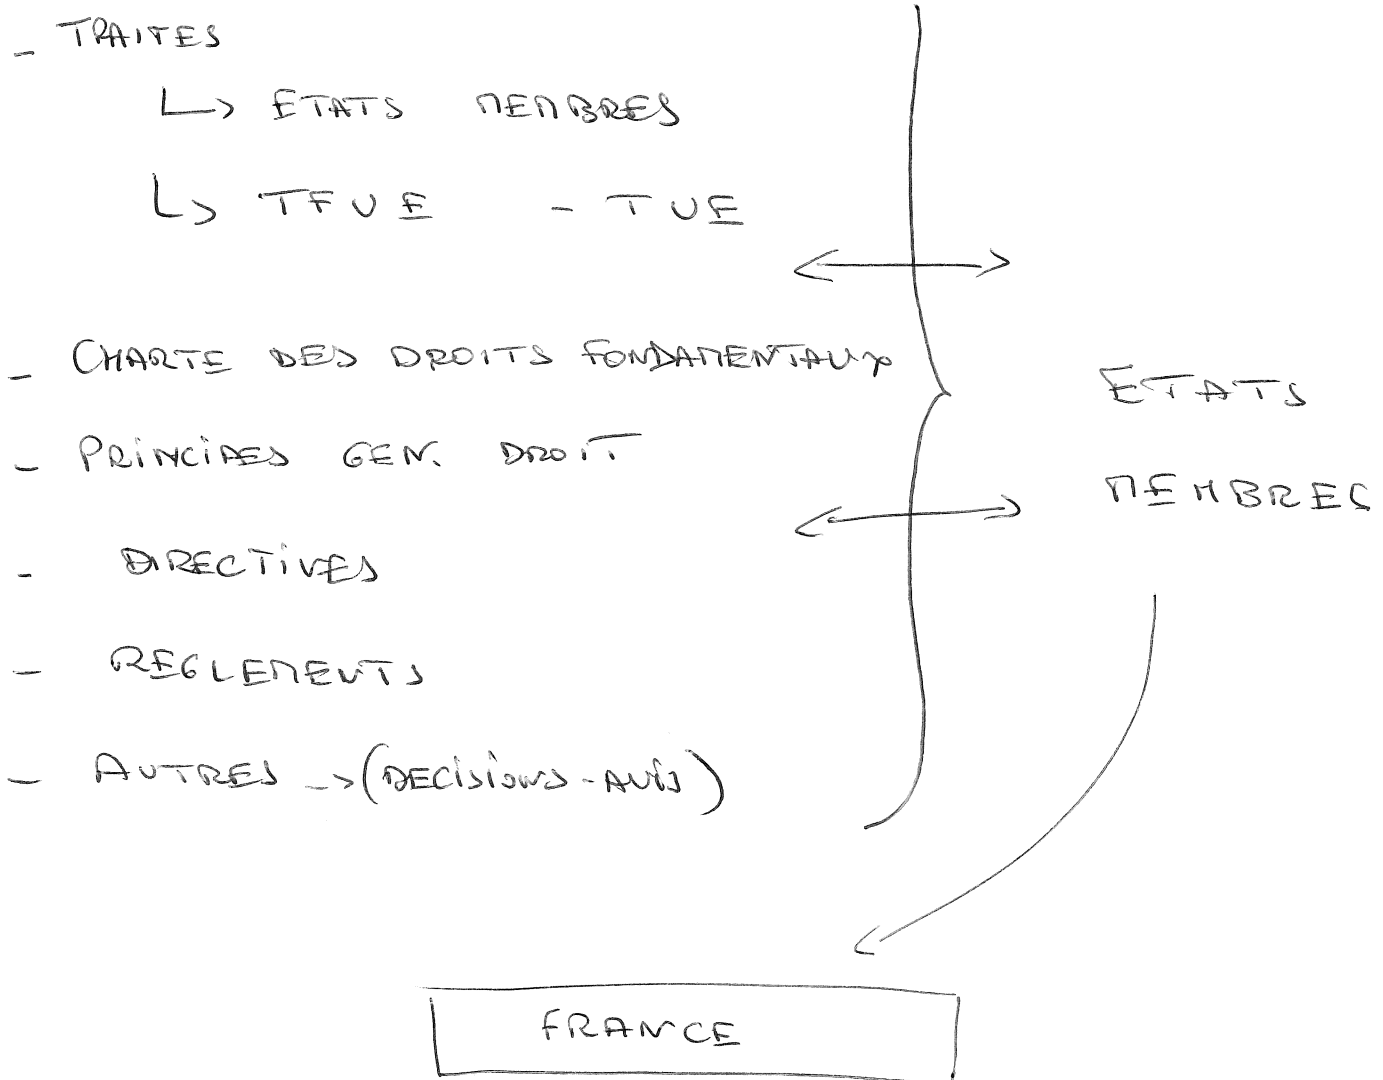 - TRAITES
↳ ETATS MEMBRES
↳ TFUE - TUE
- CHARTE DES DROITS FONDAMENTAUX
- PRINCIPES GEN. DROIT
- DIRECTIVES
- REGLEMENTS
- AUTRES -> (DECISIONS - AVIS)
ETATS
MEMBRES
FRANCE